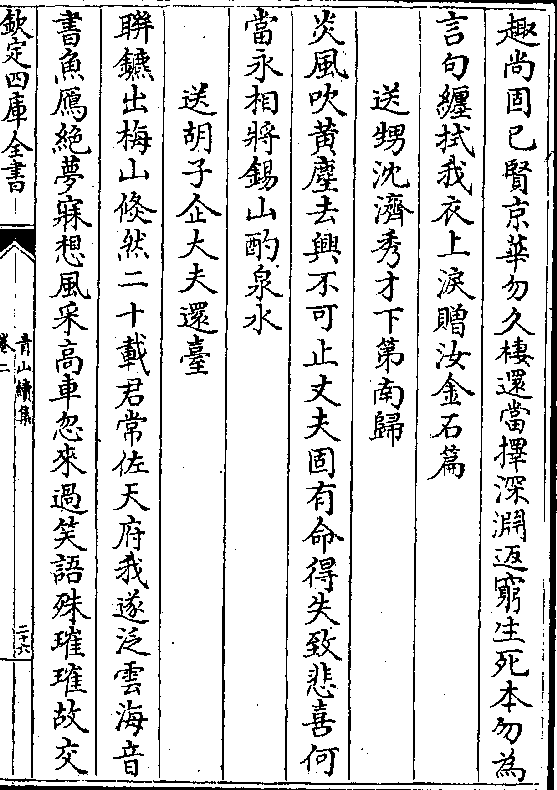 趣尚固已賢京華勿久棲還當擇深淵返窮生死本勿為
言句纏拭我衣上淚贈汝金石篇
送甥沈濟秀才下第南歸
炎風吹黄塵去興不可止丈夫固有命得失致悲喜何
當永相將錫山酌泉水
送胡子企大夫還臺
聯鑣出梅山倏然二十載君常佐天府我遂泛雲海音
書魚鴈絶夢寐想風采高車忽來過笑語殊璀璀故交
欽定四庫全書
青山續集
卷二
二十六